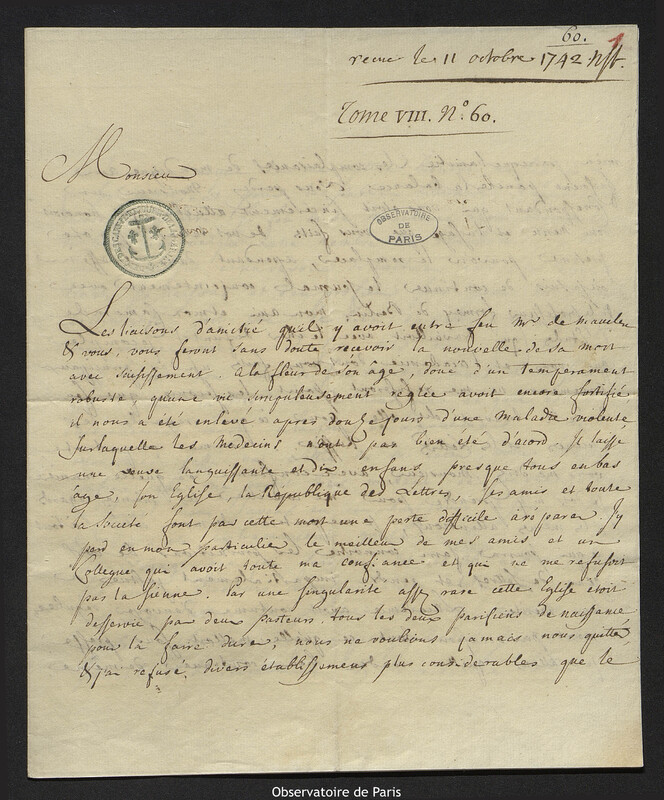 60. 1
reçue le 11 octobre 1742 nſt.
Tome VIII. N.º 60.
Monsieur
OBSERVATOIRE
DE
PARIS
Les liaisons d'amitié qu'il y avoit entre feu Mr de Mauclerc
& vous, vous feront sans doute recevoir la nouvelle de sa mort
avec saisissement. A la fleur de son âge, doué d'un temperament
robuste, qu'une vie scrupuleusement reglée avoit encore fortifié,
il nous a été enlevé apres douze jours d'une maladie violente
sur laquelle les Medecins n'ont pas bien été d'acord. Il laisse
une veuve languissante et dix enfans, presque tous en bas
âge, son Eglise, la République des Lettres, ses amis et toute
la Societé font par cette mort une perte difficile à réparer. J'y
perd en mon particulier le meilleur de mes amis et un
Collegue qui avoit toute ma confiance et qui ne me refusoit
pas la sienne. Par une singularité assez rare cette Eglise etoit
desservie par deux Pasteurs tous les deux parisiens de naissance
pour la faire durer, nous ne voulions jamais nous quitter,
& j'ai refusé divers établissemens plus considerables que le
Observatoire de Paris